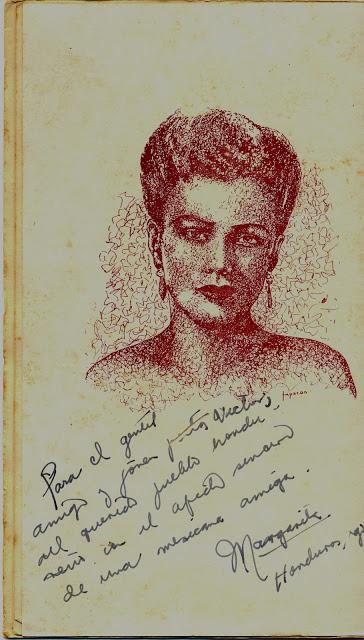 Para el gentil
amigo y joven poeta Victor,
del querido pueblo hondu-
reño con el afecto sincero
de una mexicana amiga.
Margarita
Honduras,